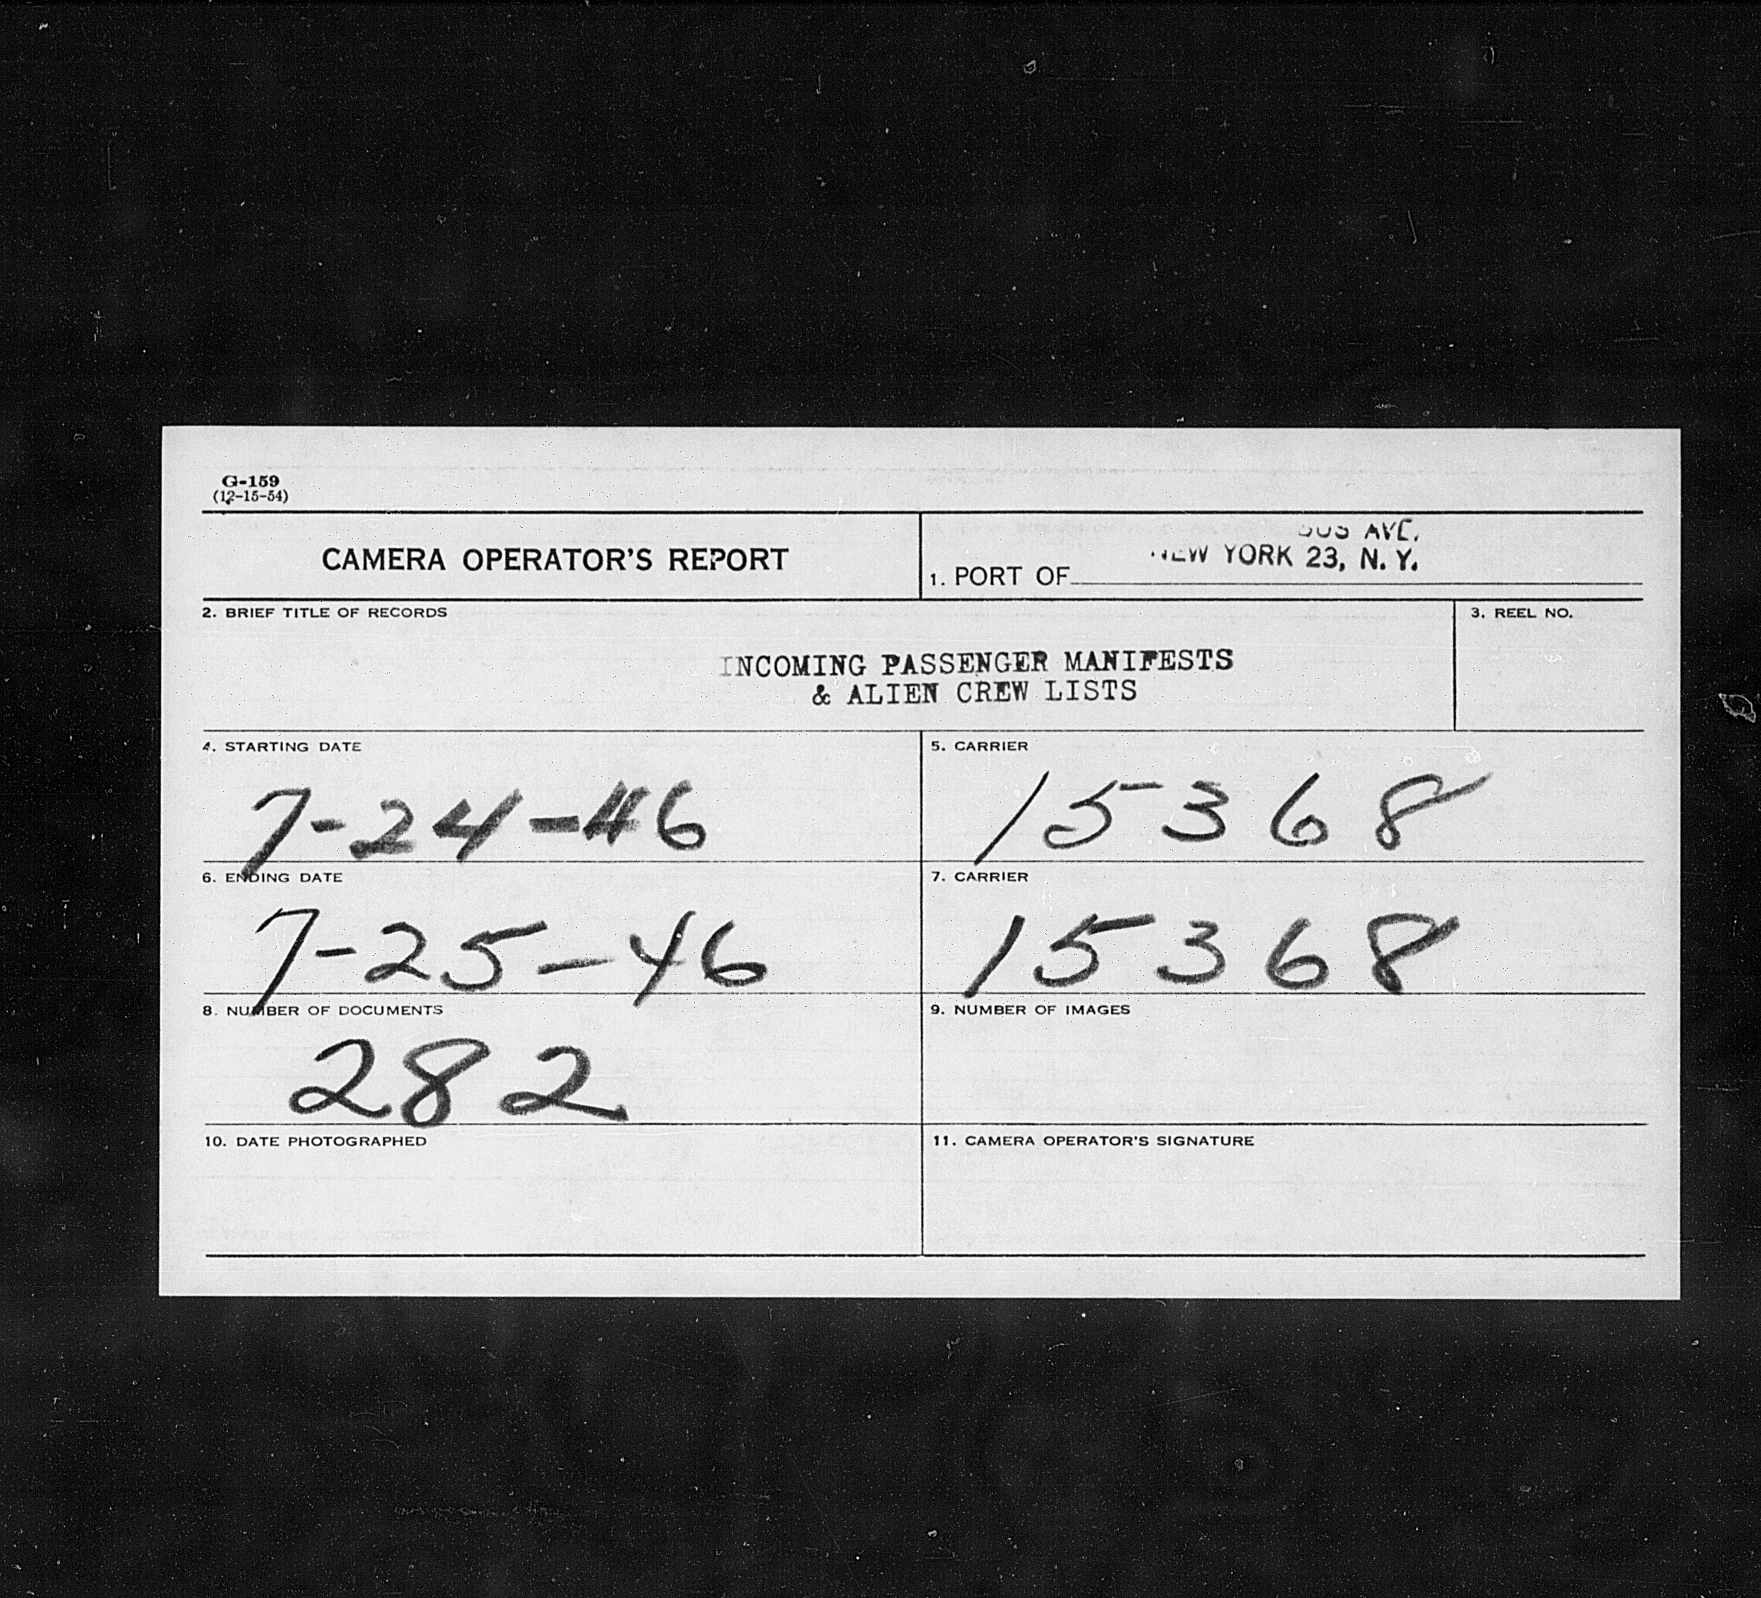 G-159
(12-15-54)
CAMERA OPERATOR'S REPORT
AVE.
1. PORT OF NEW YORK 23, N. Y.
2. BRIEF TITLE OF RECORDS
3. REEL NO.
INCOMING PASSENGER MANIFESTS
& ALIEN CREW LISTS
4. STARTING DATE
5. CARRIER
7-24-46
15368
6. ENDING DATE
7. CARRIER
7-25-46
15368
8. NUMBER OF DOCUMENTS
9. NUMBER OF IMAGES
282
10. DATE PHOTOGRAPHED
11. CAMERA OPERATOR'S SIGNATURE